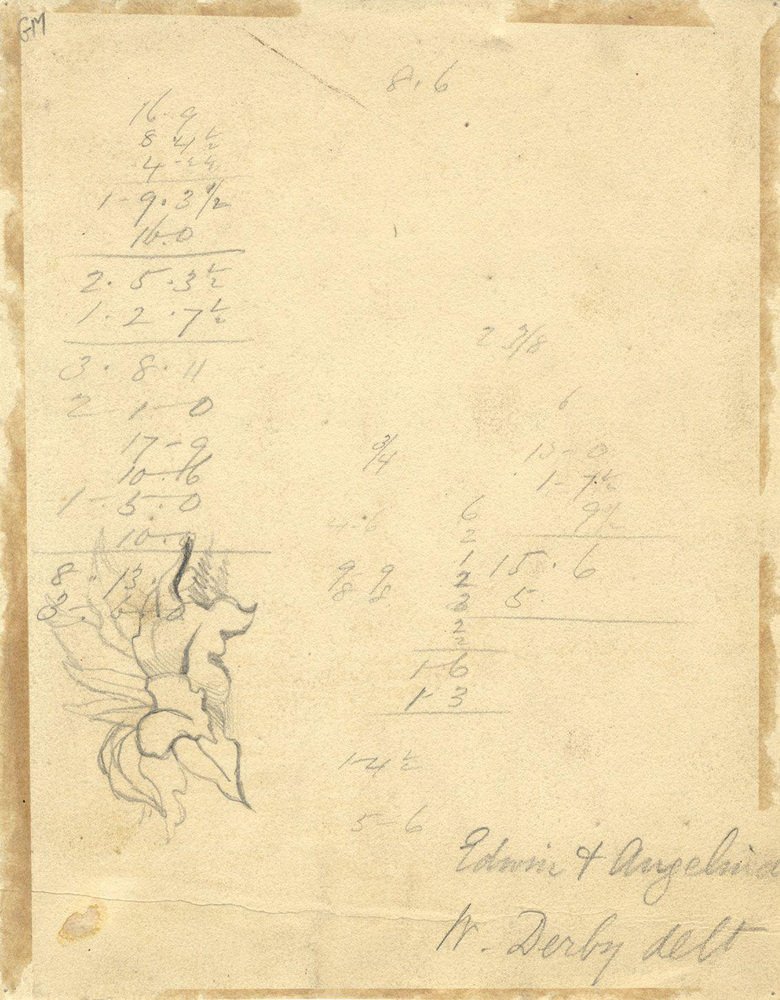 GM
8.6
16-9
8 4½
4
1-9.3½
16.0
2.5.3½
1.2.7½
3.8.11
2-1-0
17-9
10-6
1-5.0
10-0
8.13.
2 3/8
6
3/4
13-0
1-7½
9½
15.6
5
4.6
9 9
8 8
6
2
1
2
3
2
2
1-6
1-3
1-4½
5-6
Edwin & Angelina
W. Derby delt